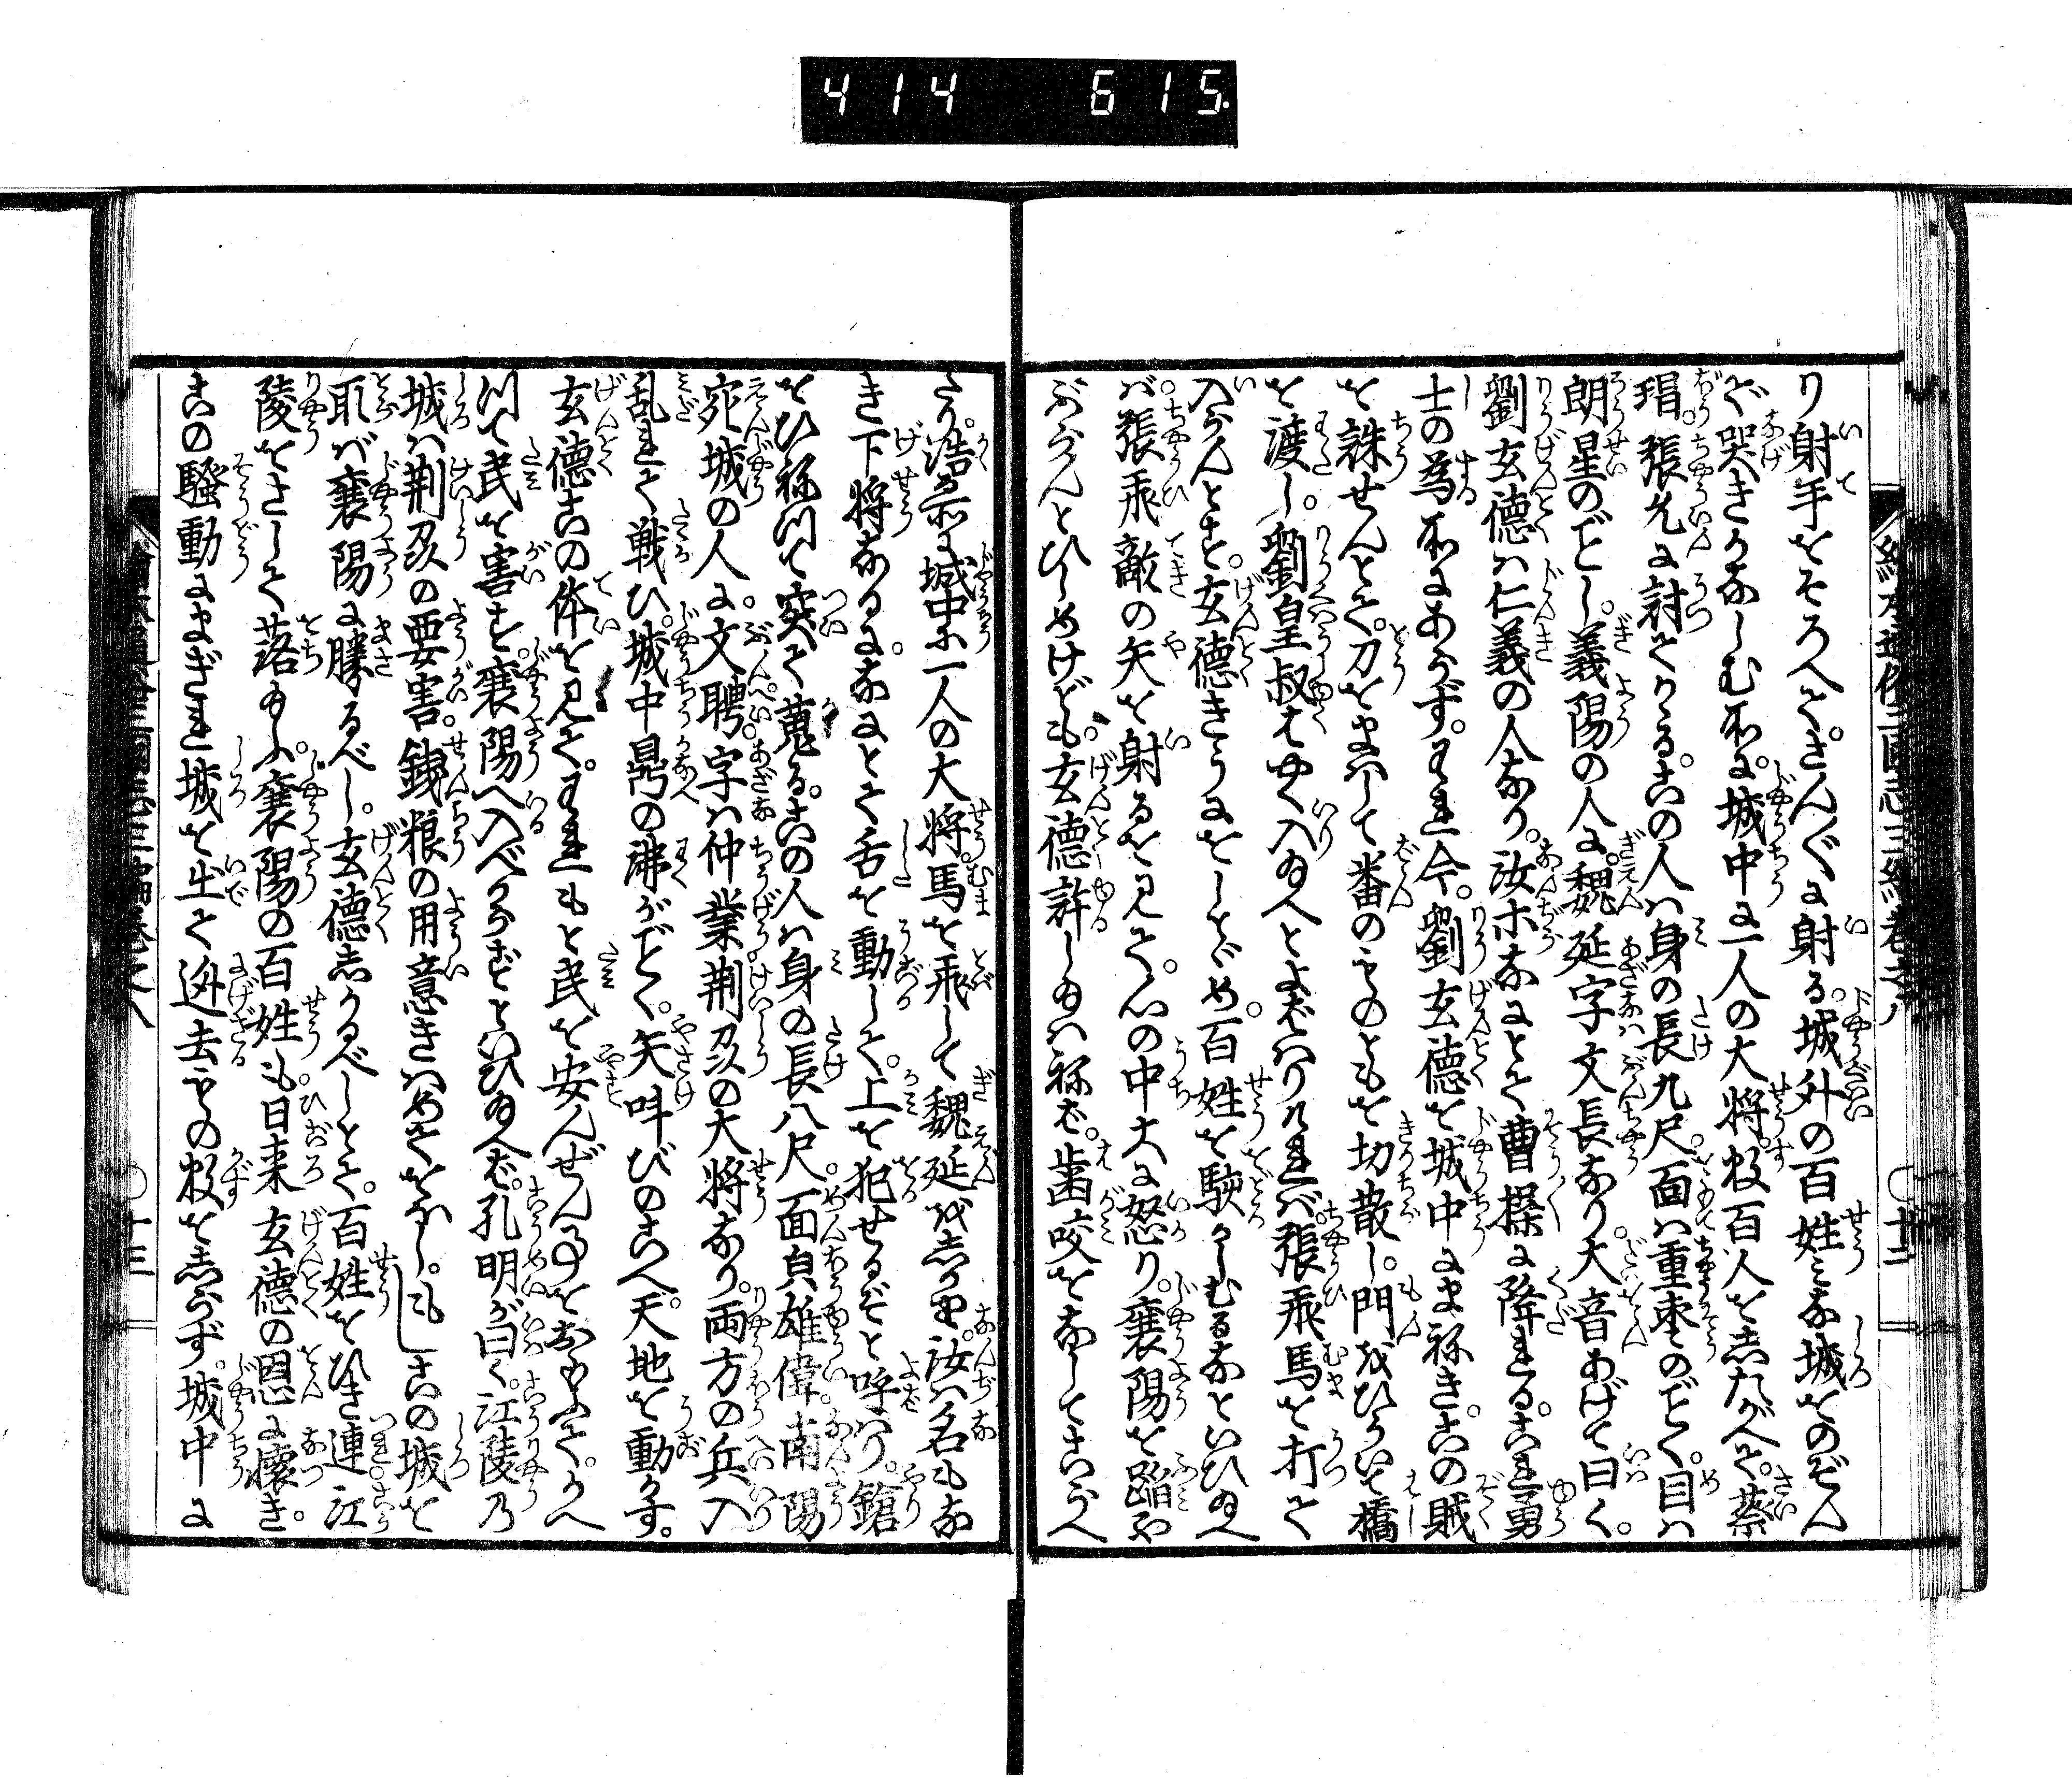 414 615.
り射手をそろへて。さんざんに射る。城外の百姓みな城をのぞん
で哭きかなしむ所に。城中に一人の大将。数百人を志たがへて。蔡
瑁。張允に討てかゝる。この人は身の長九尺。面は重棗のごとく。目は
朗星のごとし。義陽の人に。魏延字は文長なり。大音あげて曰く。
劉玄徳は仁義の人なり。汝ホなにとて曹操に降れる。これ勇
士の為所にあらず。われ今。劉玄徳を城中にまねき。この賊
を誅せんとて。刀をまはして番のものどもを切散し。門をひらいて橋
を渡し。劉皇叔はやく入給へとよばはりければ。張飛馬を打て
入らんとす。玄徳きうにをしとゞめ。百姓を駭かしむるなといひ給へ
ば。張飛敵の矢を射るを見て。心の中大に怒り。襄陽を蹈や
ぶらんとひしめけども。玄徳許し給はねば。歯咬をなしてこらへ
たり。浩る所に城中ゟ一人の大将。馬を飛して魏延を志かり。汝は名もな
き下将なるに。なにとて舌を動して。上を犯せるぞと呼はり。鎗
をひねつて突て蒐る。この人は身の長八尺。面貌雄偉。南陽
宛城の人に。文聘。字は仲業。荊刕の大将なり。両方の兵入
乱れて戦ひ。城中鼎の沸がごとく。矢叫びのこへ。天地を動かす。
玄徳この体を見て。われもと民を安んぜん事をおもふて。かへ
つて民を害す。襄陽へ入べからずといひ給へば。孔明が曰く。江陵乃
城は荊刕の要害。銭粮の用意きはめてをほし。もしこの城を
取ば襄陽に勝るべし。玄徳志かるべしとて。百姓をひき連。江
陵をさして落給ふ。襄陽の百姓も。日来玄徳の恩に懐き。
この騒動にまぎれ城を出て迯去もの数を志らず。城中に